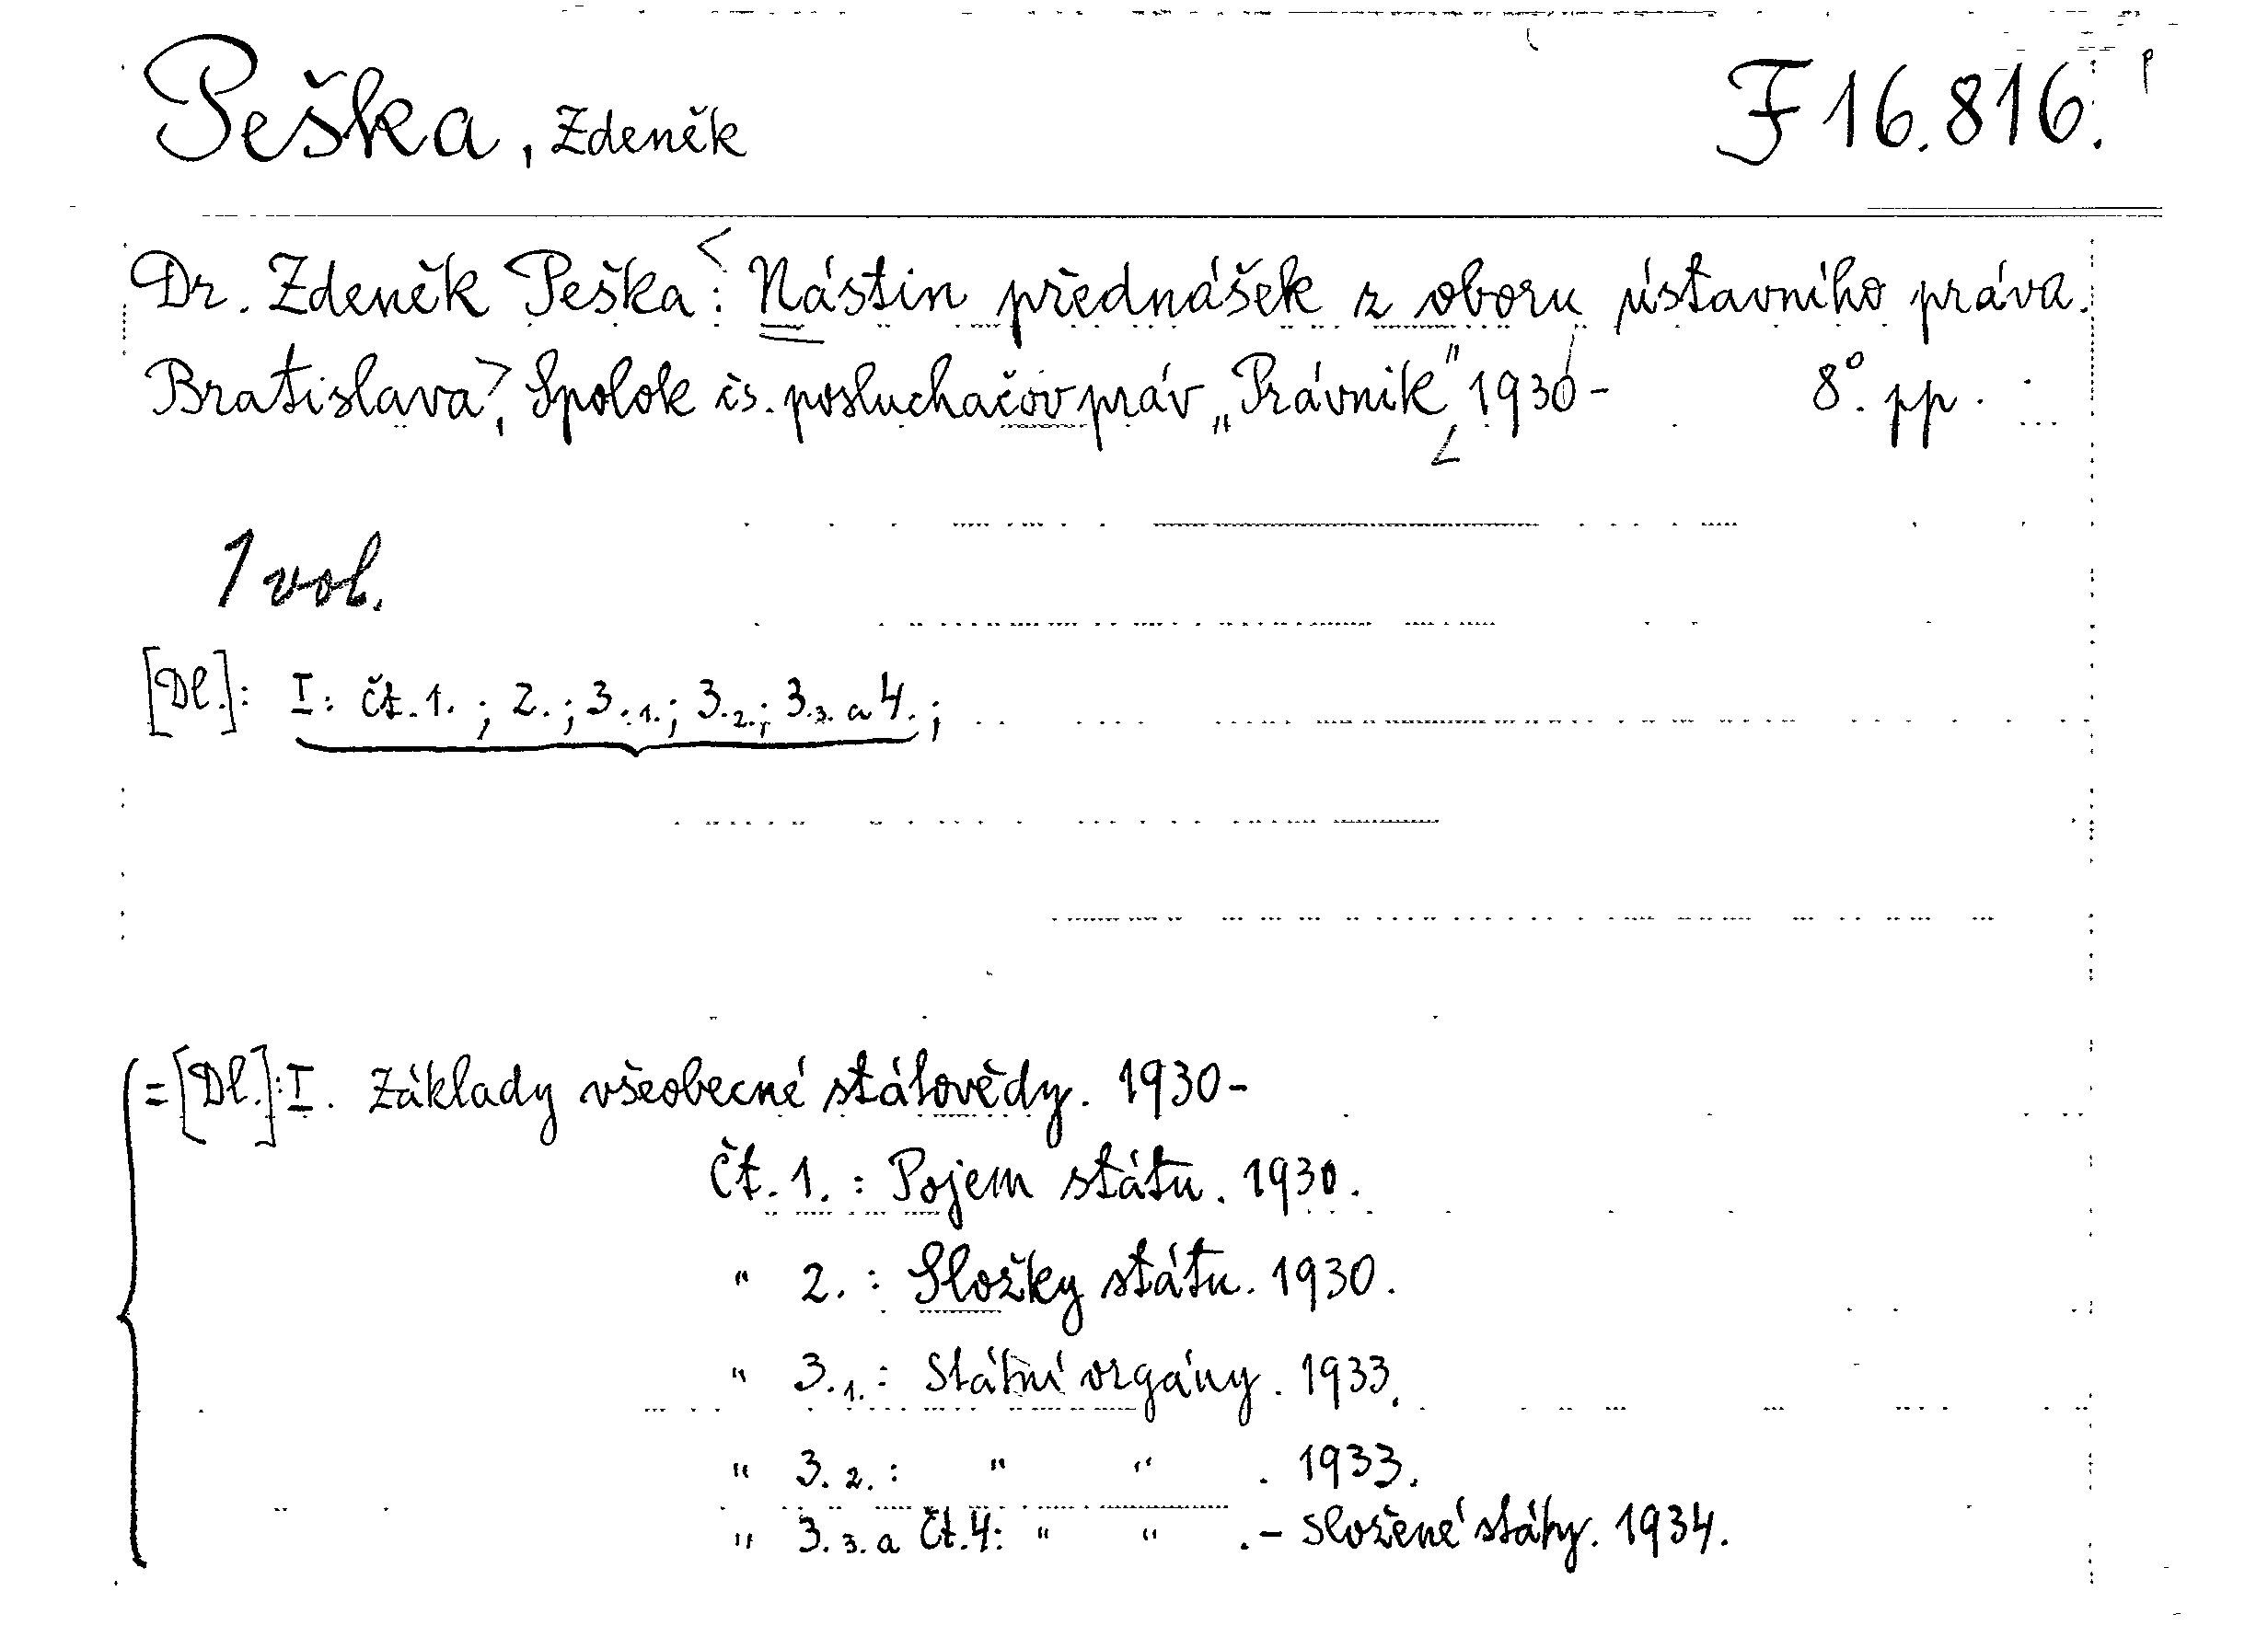 Peška, Zdeněk F 16.816.
Dr. Zdeněk Peška: Nástin přednášek z oboru ústavního práva.
Bratislava, Spolok čs. posluchačov práv „Právnik" 1930- 8° pp.
1 vol.
[Dl.]: I: čt. 1. ; 2. ; 3.1. ; 3.2. ; 3.3. a 4. ;
=[Dl.]: I. Základy všeobecné státovědy. 1930-
Čt. 1. : Pojem státu. 1930.
" 2. : Složky státu. 1930.
" 3.1. : Státní orgány. 1933.
" 3.2. : " " . 1933.
" 3.3. a Čt. 4: " " . - Složené státy. 1934.